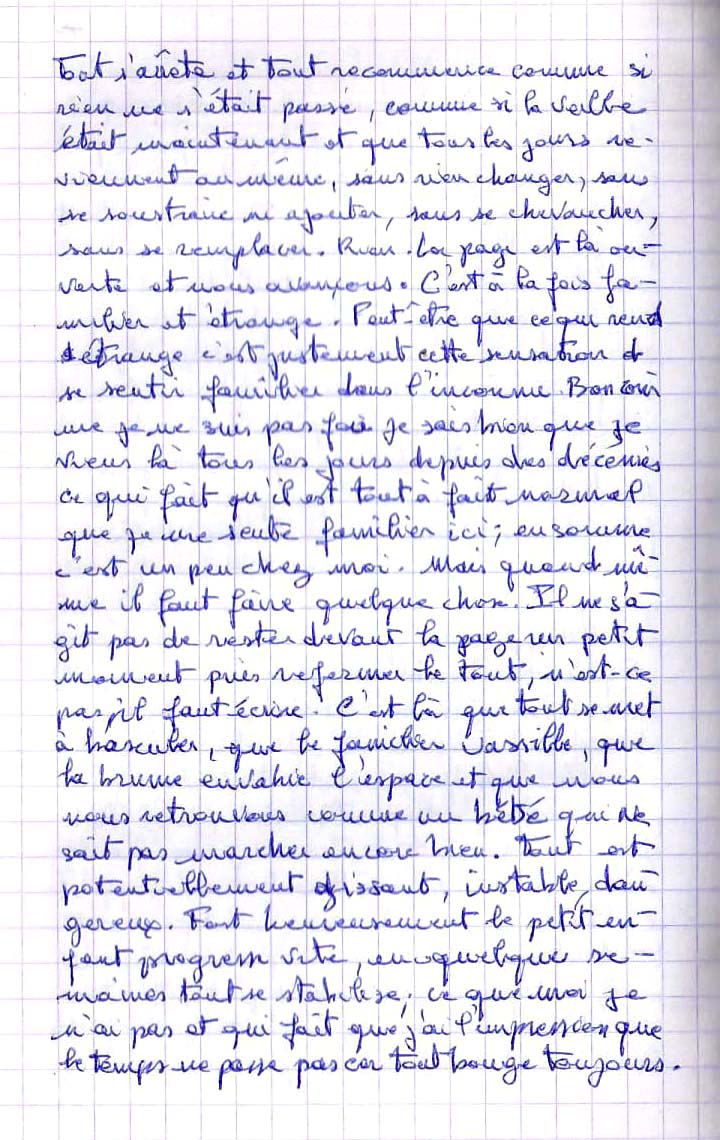 Tout s'arrête et tout recommence comme si
rien ne s'était passé, comme si la veille
était maintenant et que tous les jours re-
viennent au même, sans rien changer, sans
se soustraire ni ajouter, sans se chevaucher,
sans se remplacer. Rien. La page est là ou-
verte et nous avançons. C'est à la fois fa-
milier et étrange. Peut-être que ce qui rend
étrange c'est justement cette sensation d
se sentir familier dans l'inconnu. Bon com
me je ne suis pas fou je sais bien que je
viens là tous les jours depuis des décenies
ce qui fait qu'il est tout à fait normal
que je me sente familier ici; en somme
c'est un peu chez moi. Mais quand mê-
me il faut faire quelque chose. Il ne s'a-
git pas de rester devant la page un petit
moment puis refermer le tout, n'est-ce
pas, il faut écrire. C'est là que tout se met
à basculer, que le familier vassille, que
la brume envahie l'espace et que nous
nous retrouvons comme un bébé qui ne
sait pas marcher encore bien. Tout est
potentiellement glissant, instable, dan
gereux. Fort heureusement le petit en-
fant progresse vite, en quelque se-
maines tout se stabilise, ce que moi je
n'ai pas et qui fait que j'ai l'impression que
le temps ne passe pas car tout bouge toujours.